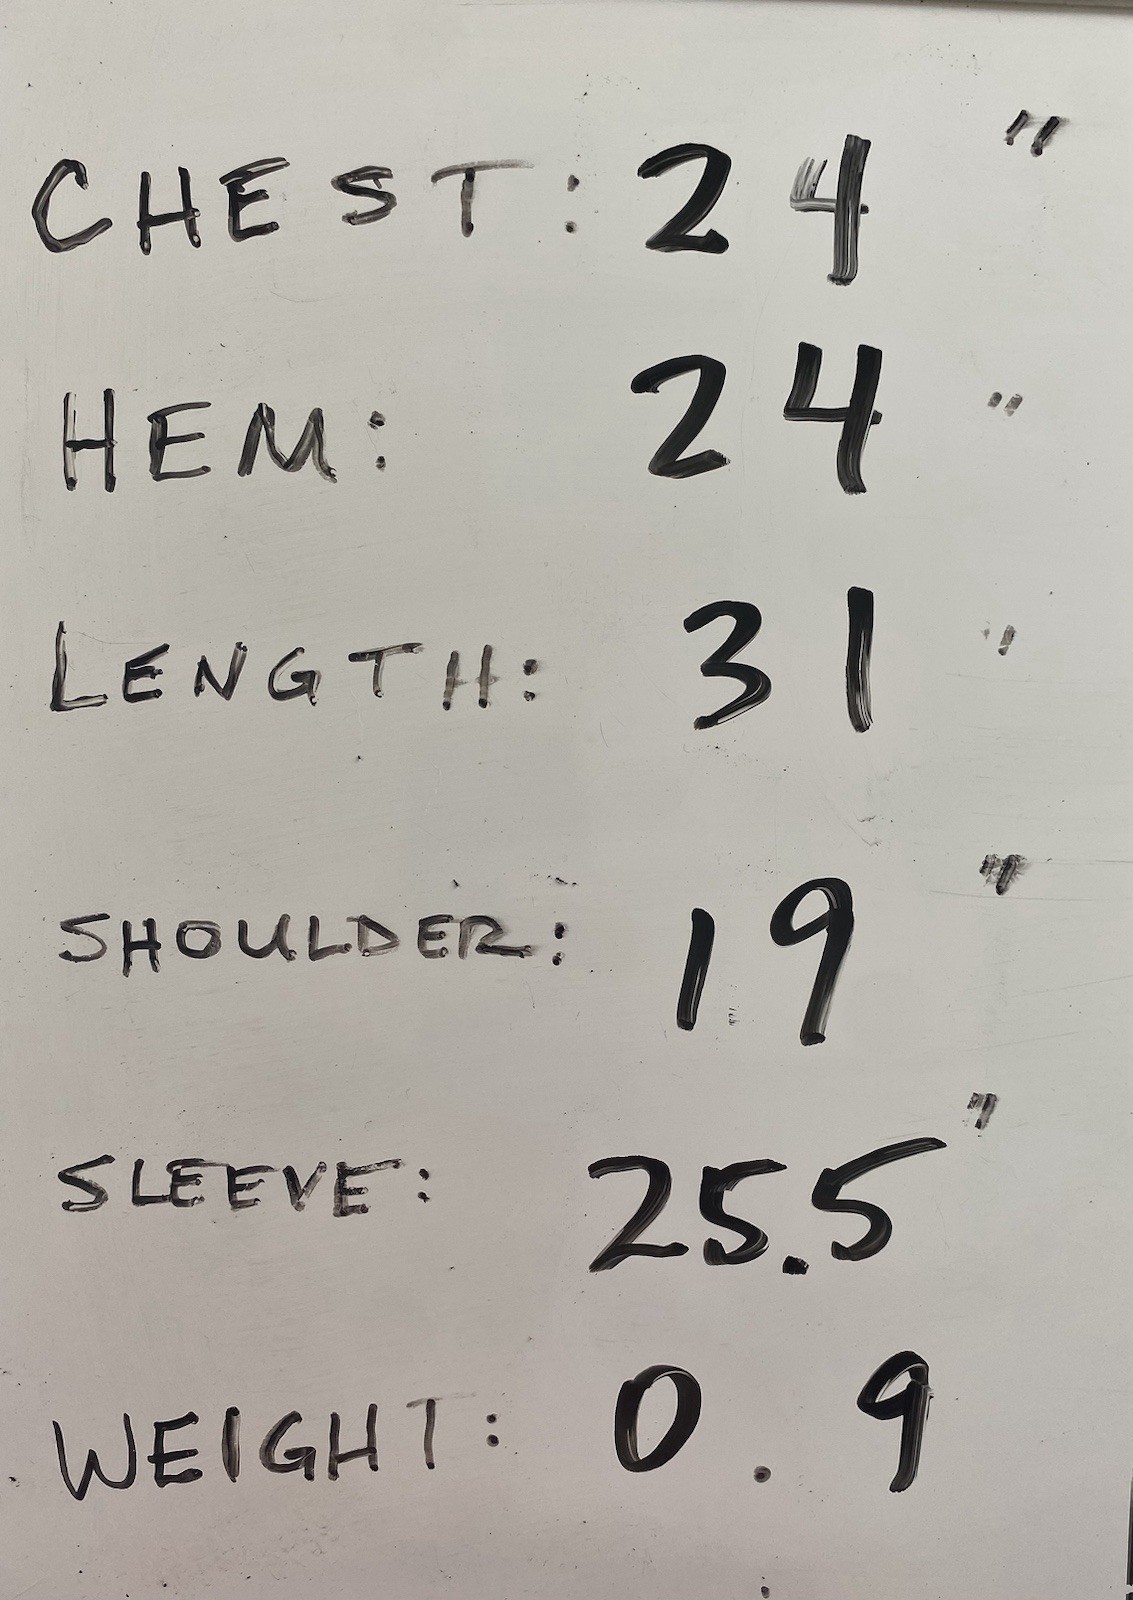 CHEST: 24"
HEM: 24"
LENGTH: 31"
SHOULDER: 19"
SLEEVE: 25.5"
WEIGHT: 0.9